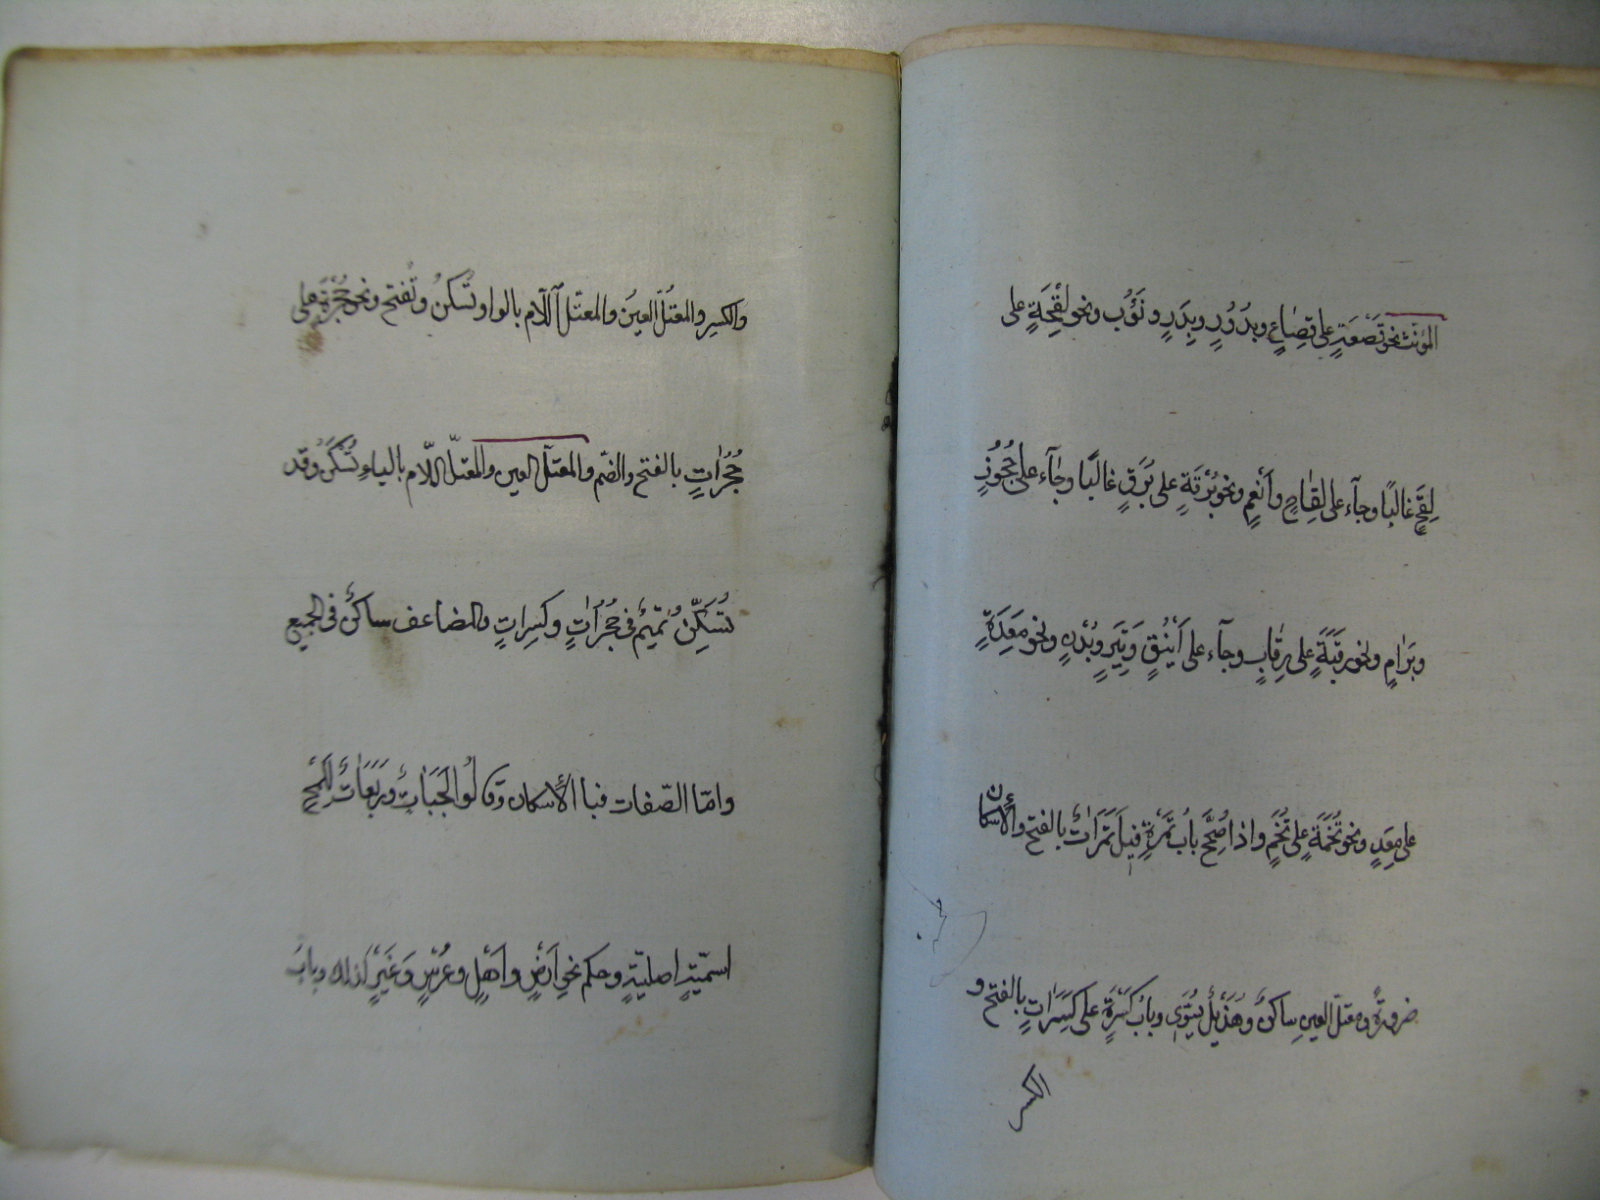 المؤنث نحو قَصْعَةٍ على قِصَاعٍ وبُدُورٍ وبِدَرٍ ونُوَبٍ ونحو لِقْحَةٍ على
لِقَحٍ غالبًا وجآء على لِقَاحٍ وأَنْعُمٍ ونحو بُرْقَةٍ على بُرَقٍ غالبًا وجآء على حُجُوزٍ
وبِرَامٍ ونحو رَقَبَةٍ على رِقَابٍ وجآء على أَيْنُقٍ وَتِيَرٍ وبُدْنٍ ونحو مَعِدَةٍ
على مِعَدٍ ونحو تُخَمَةٍ على تُخَمٍ واذا صُحِّحَ بابُ تَمْرَةٍ قيل تَمَرَاتٌ بالفتح والأِسكان
ضرورةٌ ومعتلّ العينِ ساكنٌ وهُذَيْلُ يُسَوّي وبابُ كَسْرَةٍ على كَسِرَاتٍ بالفتح و
الكسر
والكسرِ والمعتلّ العينُ والمعتلّ اللّام بالواو تُسكنُ وتُفتح ونحو حُجْرَةٍ على
حُجُرَاتٍ بالفتح والضّم والمعتلّ العين والمعتلّ اللّام بالياءِ تُسْكَنُ وقد
تُسَكِّنُ تميمٌ في حُجُرَاتٍ وكِسِرَاتٍ والمضاعف ساكنٌ في الجميع
وامّا الصّفات فبا الأِسكان وقالُوا لَجَبَاتٌ ورَبَعَاتٌ لِلَمْحِ
اسميّةٍ اصليّةٍ وحكم نحو اَرْضٍ واَهْلٍ وعُرْسٍ وَعَيْرٍ كذلك وبابُ